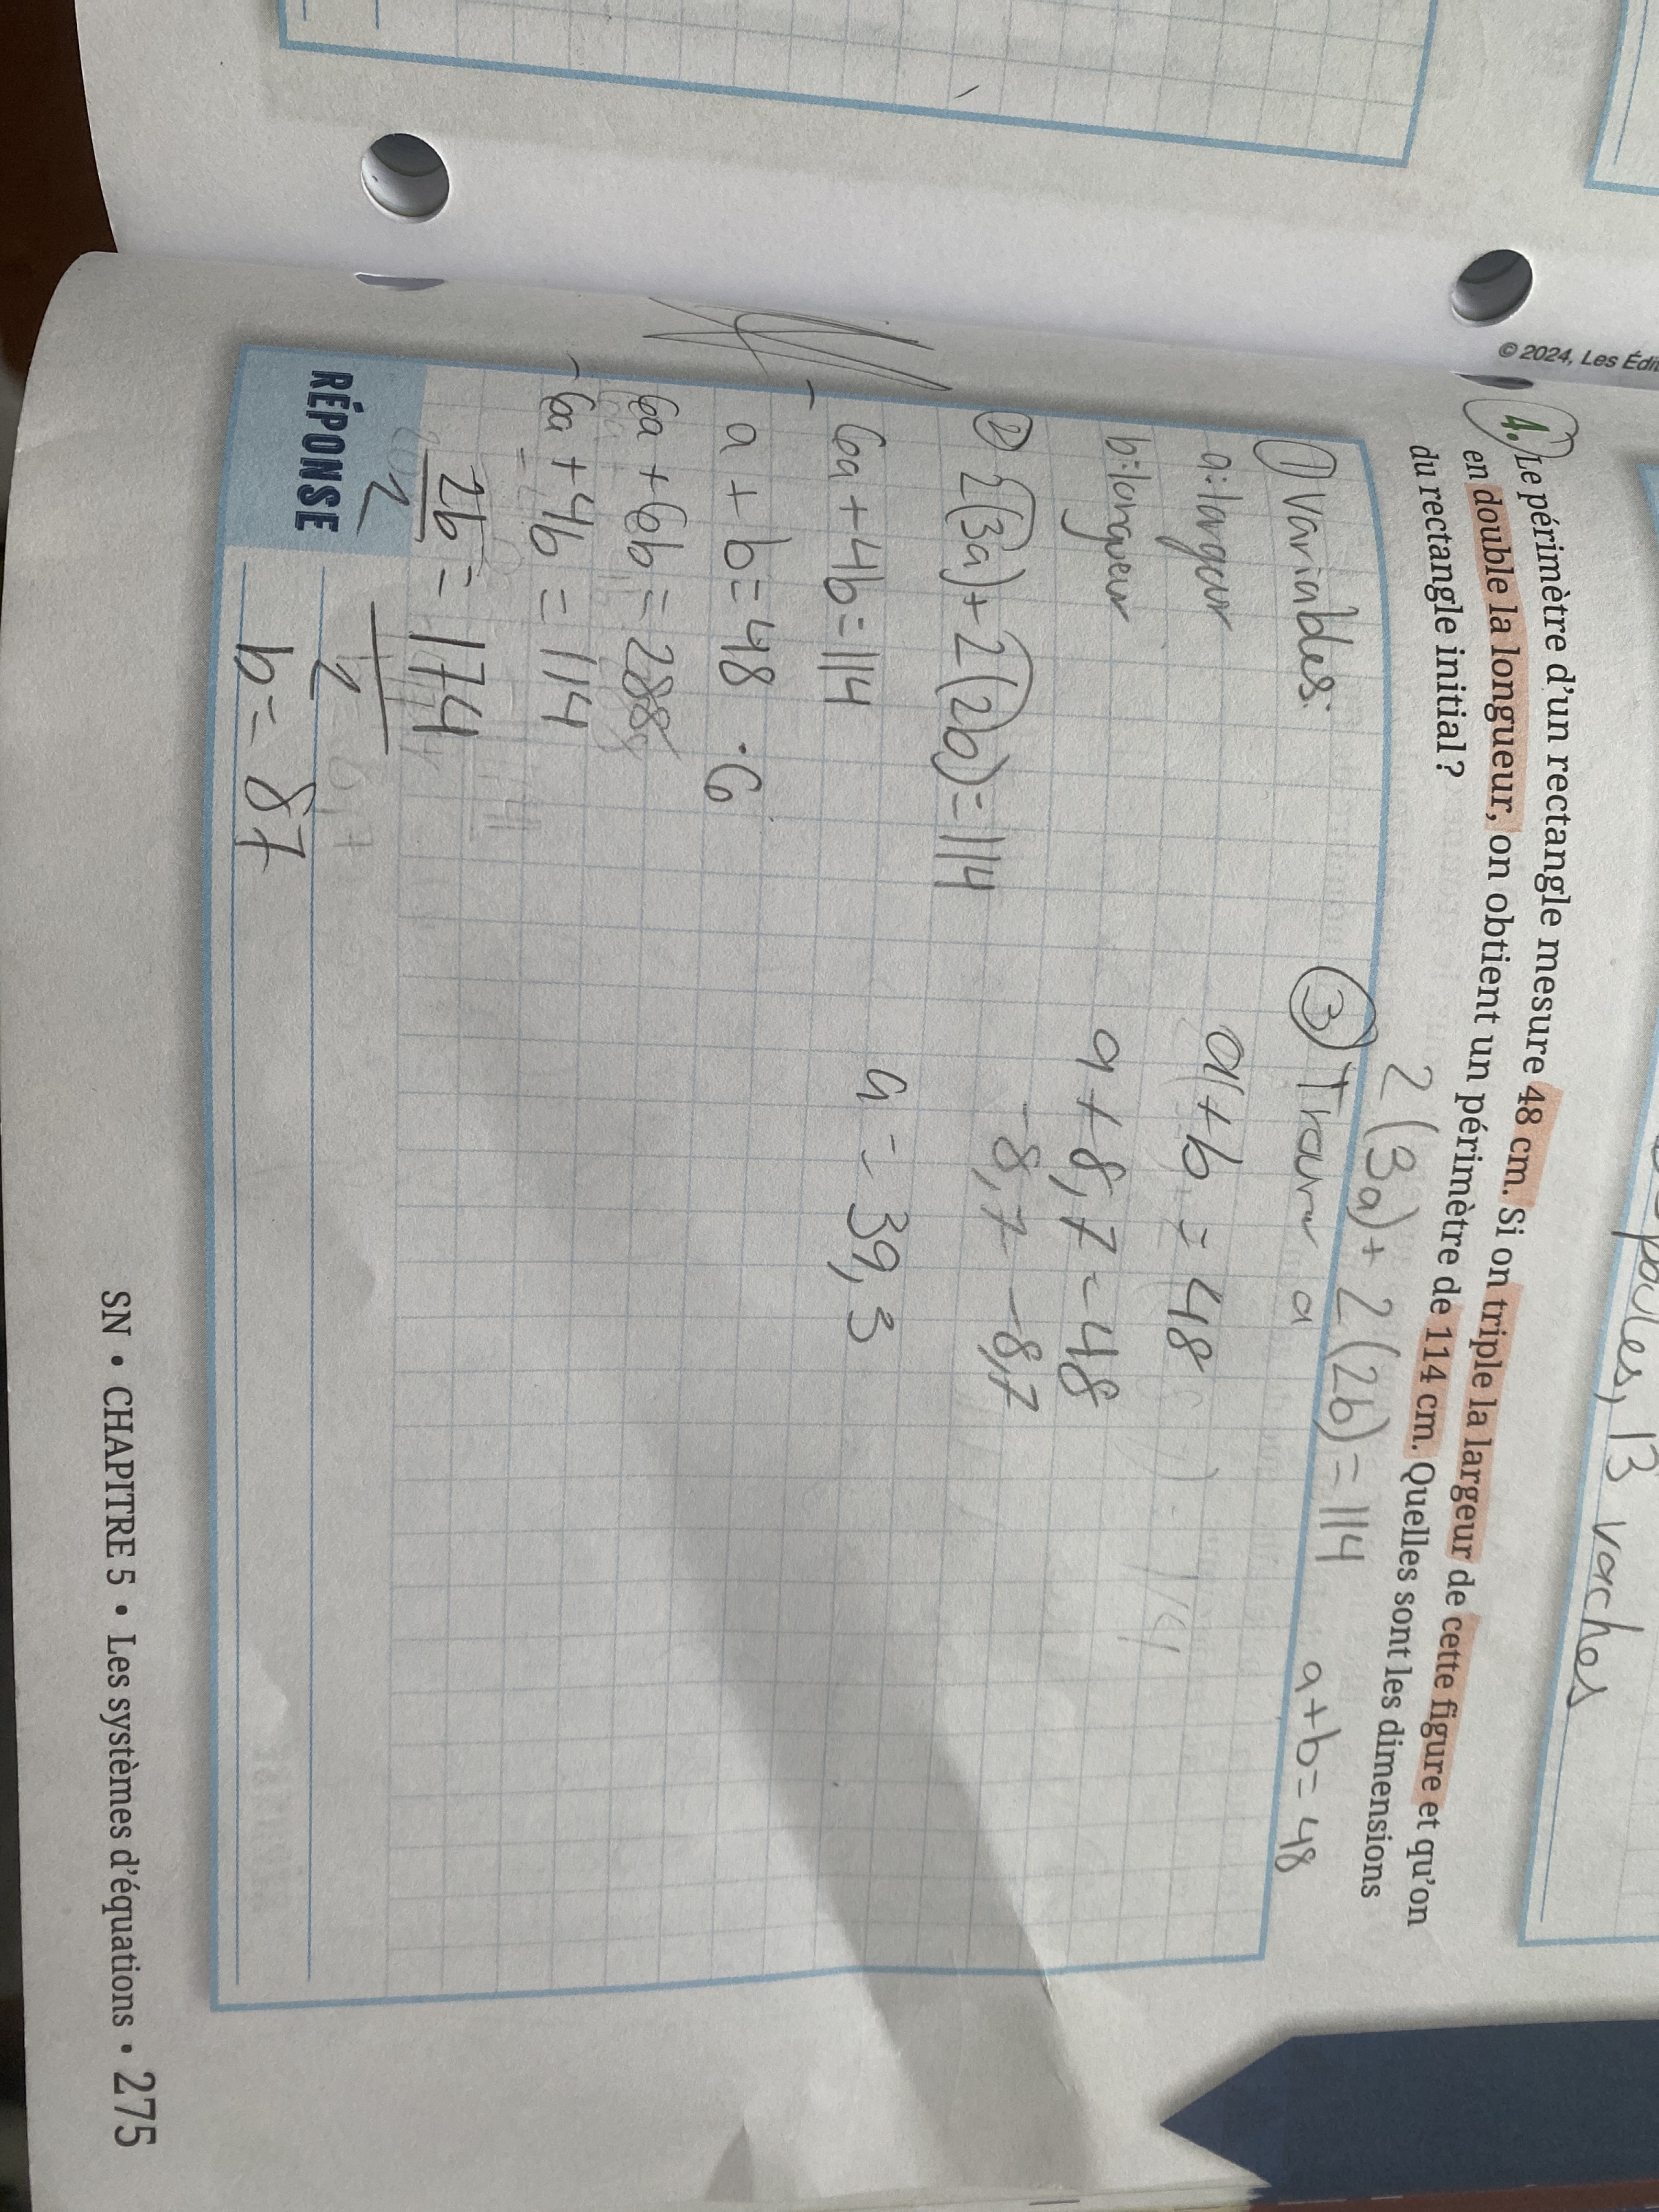 poules, 13 vaches
© 2024, Les Édit
4. Le périmètre d'un rectangle mesure 48 cm. Si on triple la largeur de cette figure et qu'on
en double la longueur, on obtient un périmètre de 114 cm. Quelles sont les dimensions
du rectangle initial ?
2(3a) + 2(2b) = 114
a+b = 48
① Variables:
a: largeur
b: longueur
② 2(3a) + 2(2b) = 114
6a + 4b = 114
a + b = 48 · 6
6a + 6b = 288
- 6a + 4b = 114
2b = 174
2 2
b = 87
③ Trouver a
a + b = 48
a + 8,7 = 48
-8,7 -8,7
a = 39,3
RÉPONSE
SN • CHAPITRE 5 • Les systèmes d'équations • 275